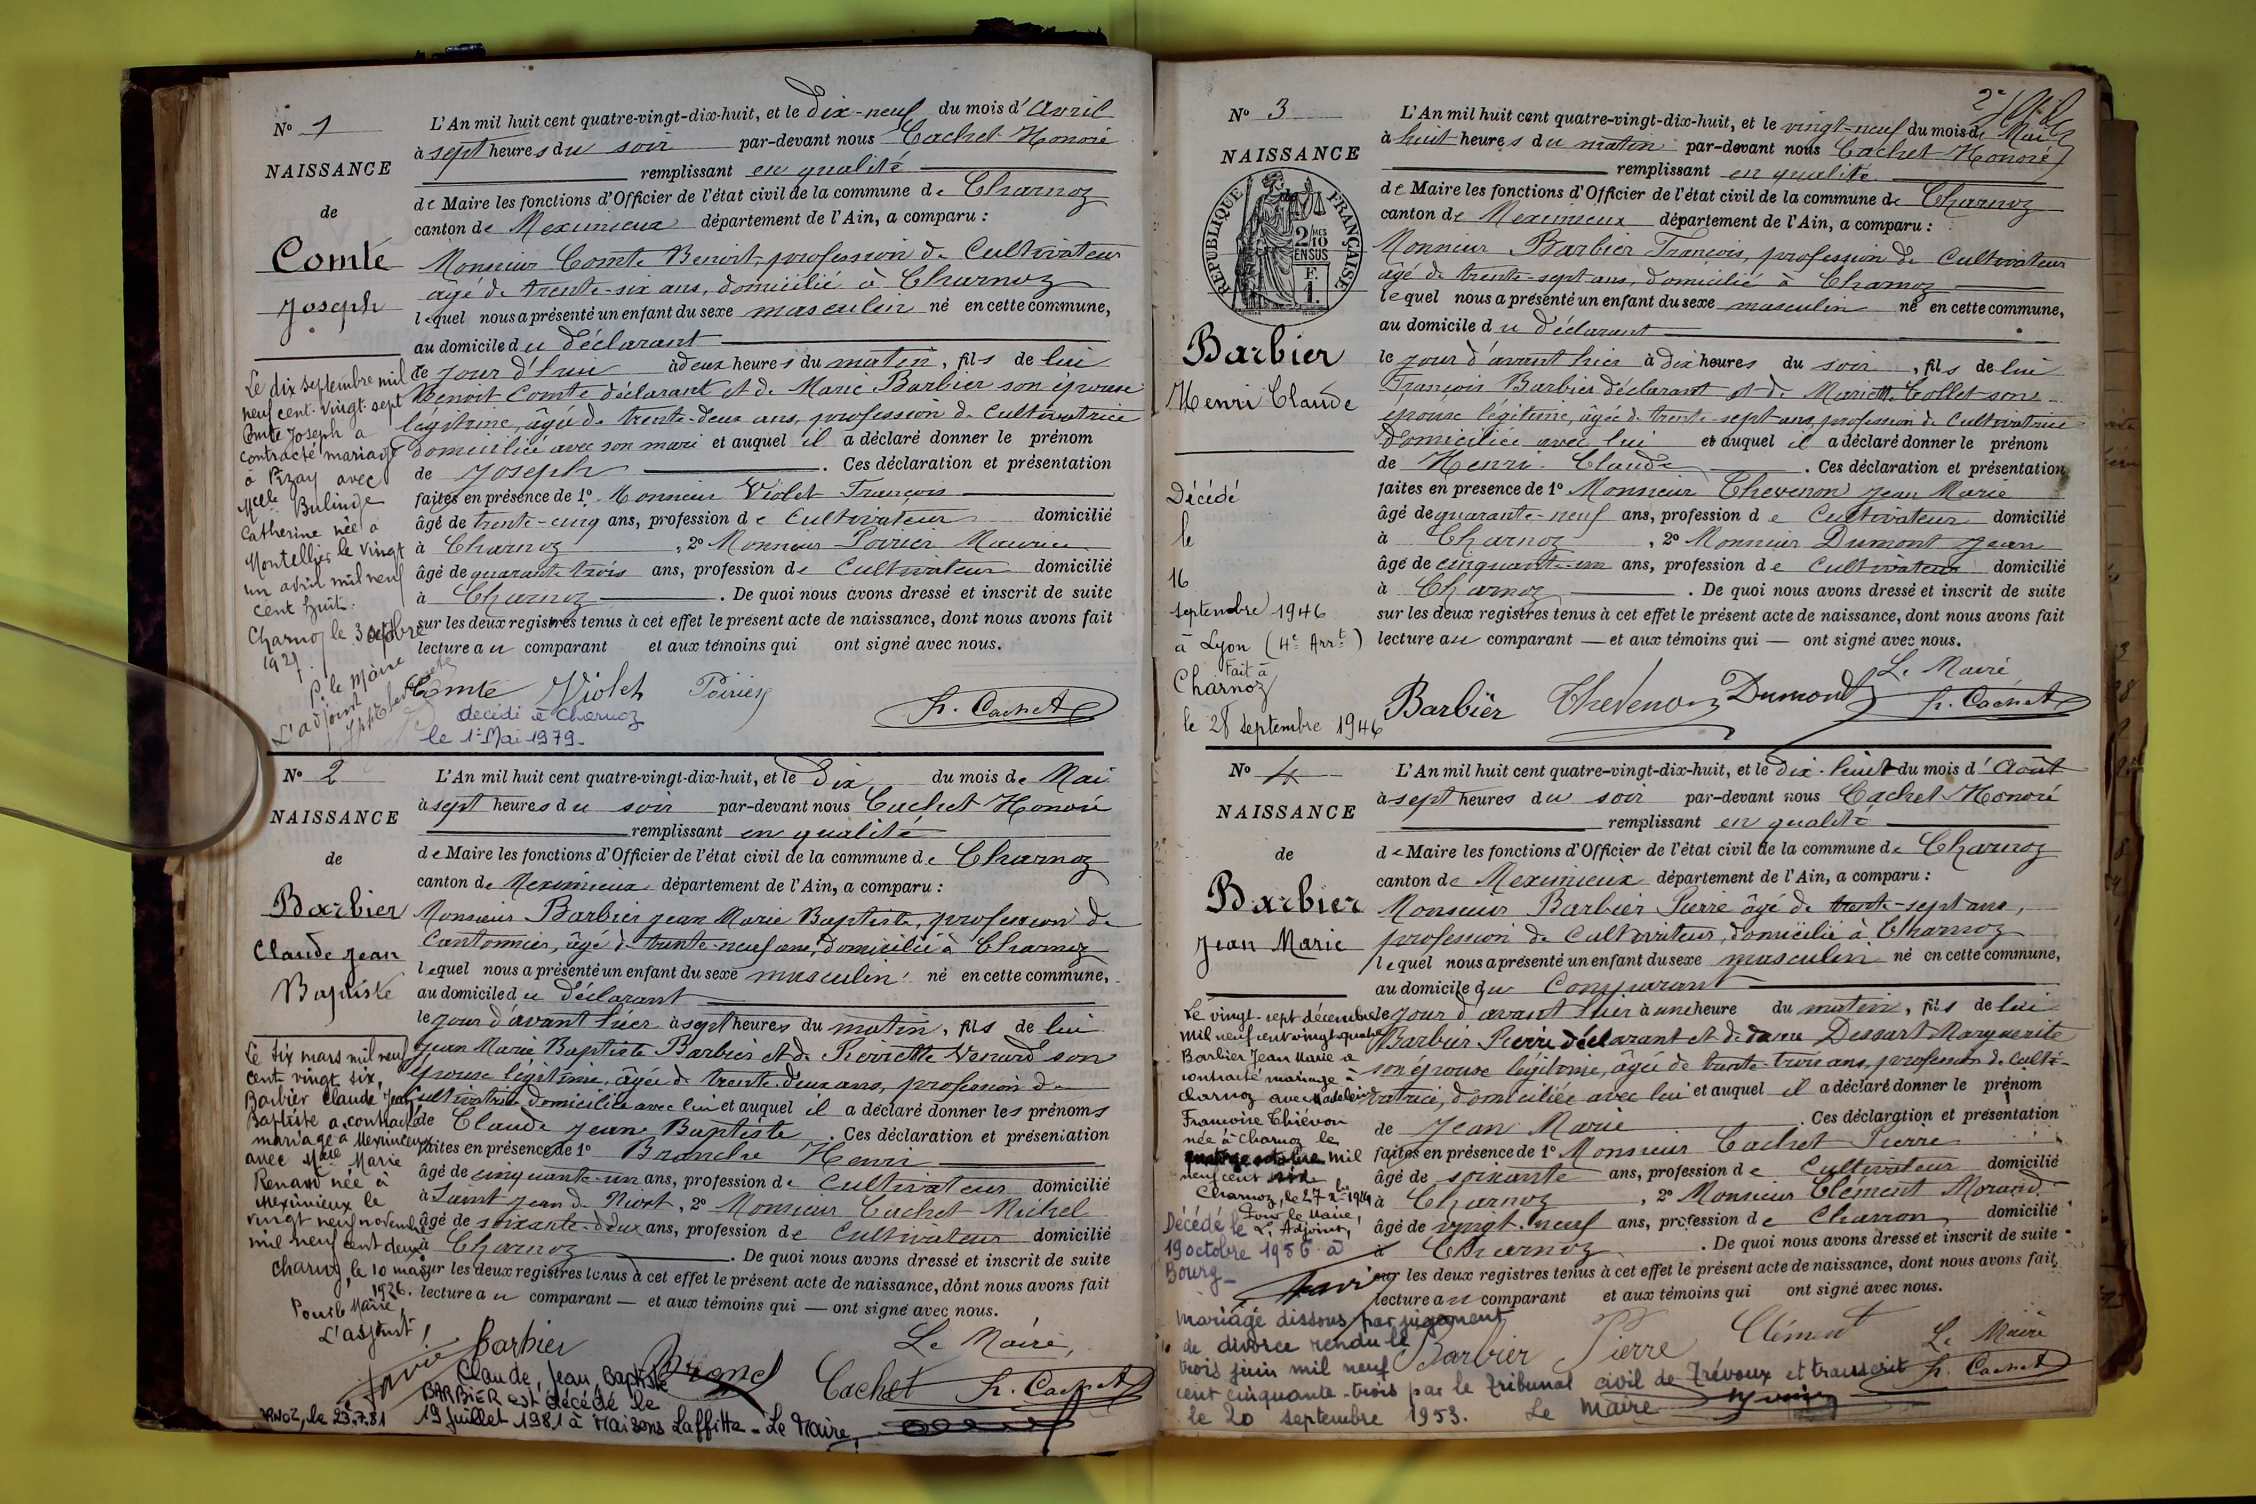 Nº 1
NAISSANCE
de
Comte
Joseph
L'An mil huit cent quatre-vingt-dix-huit, et le dix-neuf du mois d'Avril
à sept heures du soir par-devant nous Cachet Honoré
remplissant en qualité
de Maire les fonctions d'Officier de l'état civil de la commune de Charnoz
canton de Meximieux département de l'Ain, a comparu :
Monsieur Comte Benoit, profession de Cultivateur
âgé de trente-six ans, domicilié à Charnoz
lequel nous a présenté un enfant du sexe masculin né en cette commune,
au domicile du déclarant
ce jour d'hui à deux heures du matin, fils de lui
Benoit Comte déclarant et de Marie Barbier son épouse
légitime, âgée de trente-deux ans, profession de Cultivatrice
domiciliée avec son mari et auquel il a déclaré donner le prénom
de Joseph . Ces déclaration et présentation
faites en présence de 1º Monsieur Violet François
âgé de trente-cinq ans, profession de Cultivateur domicilié
à Charnoz , 2º Monsieur Poirier Maurice
âgé de quarante trois ans, profession de Cultivateur domicilié
à Charnoz . De quoi nous avons dressé et inscrit de suite
sur les deux registres tenus à cet effet le présent acte de naissance, dont nous avons fait
lecture au comparant et aux témoins qui ont signé avec nous.
Comte Violet Poirier
h. Cachet
Le dix septembre mil
neuf cent vingt sept
Comte Joseph a
contracté mariage
à Pizay avec
Melle Bulinge
Catherine née à
Montellier le vingt
un avril mil neuf
cent huit.
Charnoz le 3 octobre
1927.
P. le Maire
L'adjoint
décédé à Charnoz
le 1er Mai 1979.
Nº 2
NAISSANCE
de
Barbier
Claude Jean
Baptiste
L'An mil huit cent quatre-vingt-dix-huit, et le dix du mois de Mai
à sept heures du soir par-devant nous Cachet Honoré
remplissant en qualité
de Maire les fonctions d'Officier de l'état civil de la commune de Charnoz
canton de Meximieux département de l'Ain, a comparu :
Monsieur Barbier Jean Marie Baptiste, profession de
Cantonnier, âgé de trente-neuf ans, domicilié à Charnoz
lequel nous a présenté un enfant du sexe masculin né en cette commune,
au domicile du déclarant
le jour d'avant hier à sept heures du matin, fils de lui
Jean Marie Baptiste Barbier et de Pierrette Venard son
épouse légitime, âgée de trente-deux ans, profession de
Cultivatrice domiciliée avec lui et auquel il a déclaré donner les prénoms
de Claude Jean Baptiste . Ces déclaration et présentation
faites en présence de 1º Branche Henri
âgé de cinquante-un ans, profession de Cultivateur domicilié
à Saint Jean de Niort, 2º Monsieur Cachet Michel
âgé de soixante-deux ans, profession de Cultivateur domicilié
à Charnoz . De quoi nous avons dressé et inscrit de suite
sur les deux registres tenus à cet effet le présent acte de naissance, dont nous avons fait
lecture au comparant — et aux témoins qui — ont signé avec nous.
Le Maire,
Barbier Cachet h. Cachet
Le six mars mil neuf
cent vingt six,
Barbier Claude Jean
Baptiste a contracté
mariage à Meximieux
avec Melle Marie
Renard née à
Meximieux le
vingt neuf novembre
mil neuf cent deux
Charnoz, le 10 mars
1926.
Pour le Maire,
L'adjoint,
Claude, Jean, Baptiste
BARBIER est décédé le
19 juillet 1981 à Maisons Laffitte - Le Maire,
RNOZ, le 23.7.81
Nº 3
NAISSANCE
REPUBLIQUE FRANÇAISE
2/10 MES
EN SUS
F.
1.
Barbier
Henri Claude
L'An mil huit cent quatre-vingt-dix-huit, et le vingt-neuf du mois de Mai
à huit heures du matin par-devant nous Cachet Honoré
remplissant en qualité
de Maire les fonctions d'Officier de l'état civil de la commune de Charnoz
canton de Meximieux département de l'Ain, a comparu :
Monsieur Barbier François, profession de Cultivateur
âgé de trente-sept ans, domicilié à Charnoz
lequel nous a présenté un enfant du sexe masculin né en cette commune,
au domicile du déclarant
le jour d'avant hier à dix heures du soir , fils de lui
François Barbier déclarant et de Mariette Collet son
épouse légitime, âgée de trente-sept ans, profession de Cultivatrice
domiciliée avec lui et auquel il a déclaré donner le prénom
de Henri Claude . Ces déclaration et présentation
faites en présence de 1º Monsieur Thevenon Jean Marie
âgé de quarante-neuf ans, profession de Cultivateur domicilié
à Charnoz , 2º Monsieur Dumont Jean
âgé de cinquante-un ans, profession de Cultivateur domicilié
à Charnoz . De quoi nous avons dressé et inscrit de suite
sur les deux registres tenus à cet effet le présent acte de naissance, dont nous avons fait
lecture au comparant — et aux témoins qui — ont signé avec nous.
Le Maire
Barbier Thevenon Dumont h. Cachet
Décédé
le
16
septembre 1946
à Lyon (4e Arrt)
Fait à
Charnoz
le 28 septembre 1946
Nº 4
NAISSANCE
de
Barbier
Jean Marie
L'An mil huit cent quatre-vingt-dix-huit, et le dix-huit du mois d'Août
à sept heures du soir par-devant nous Cachet Honoré
remplissant en qualité
de Maire les fonctions d'Officier de l'état civil de la commune de Charnoz
canton de Meximieux département de l'Ain, a comparu :
Monsieur Barbier Pierre âgé de trente-sept ans,
profession de Cultivateur, domicilié à Charnoz
lequel nous a présenté un enfant du sexe masculin né en cette commune,
au domicile du Comparant
le jour d'avant hier à une heure du matin, fils de lui
Barbier Pierre déclarant et de dame Dessart Marguerite
son épouse légitime, âgée de trente-trois ans, profession de Culti-
vatrice, domiciliée avec lui et auquel il a déclaré donner le prénom
de Jean Marie . Ces déclaration et présentation
faites en présence de 1º Monsieur Cachet Pierre
âgé de soixante ans, profession de Cultivateur domicilié
à Charnoz , 2º Monsieur Clément Morand
âgé de vingt-neuf ans, profession de Charron domicilié
à Charnoz . De quoi nous avons dressé et inscrit de suite
sur les deux registres tenus à cet effet le présent acte de naissance, dont nous avons fait
lecture au comparant et aux témoins qui ont signé avec nous.
Barbier Pierre Clément Le Maire
h. Cachet
Le vingt-sept décembre
mil neuf cent vingt-quatre
Barbier Jean Marie a
contracté mariage à
Charnoz avec Madeleine
Françoise Thiévon
née à Charnoz le
mil
neuf cent
Charnoz, le 27 Xbre 1924
Pour le Maire,
L'Adjoint,
Décédé le
19 octobre 1956 à
Bourg-
Mariage dissous par jugement
de divorce rendu le
trois juin mil neuf
cent cinquante-trois par le tribunal civil de Trévoux et transcrit
le 20 septembre 1953. Le Maire